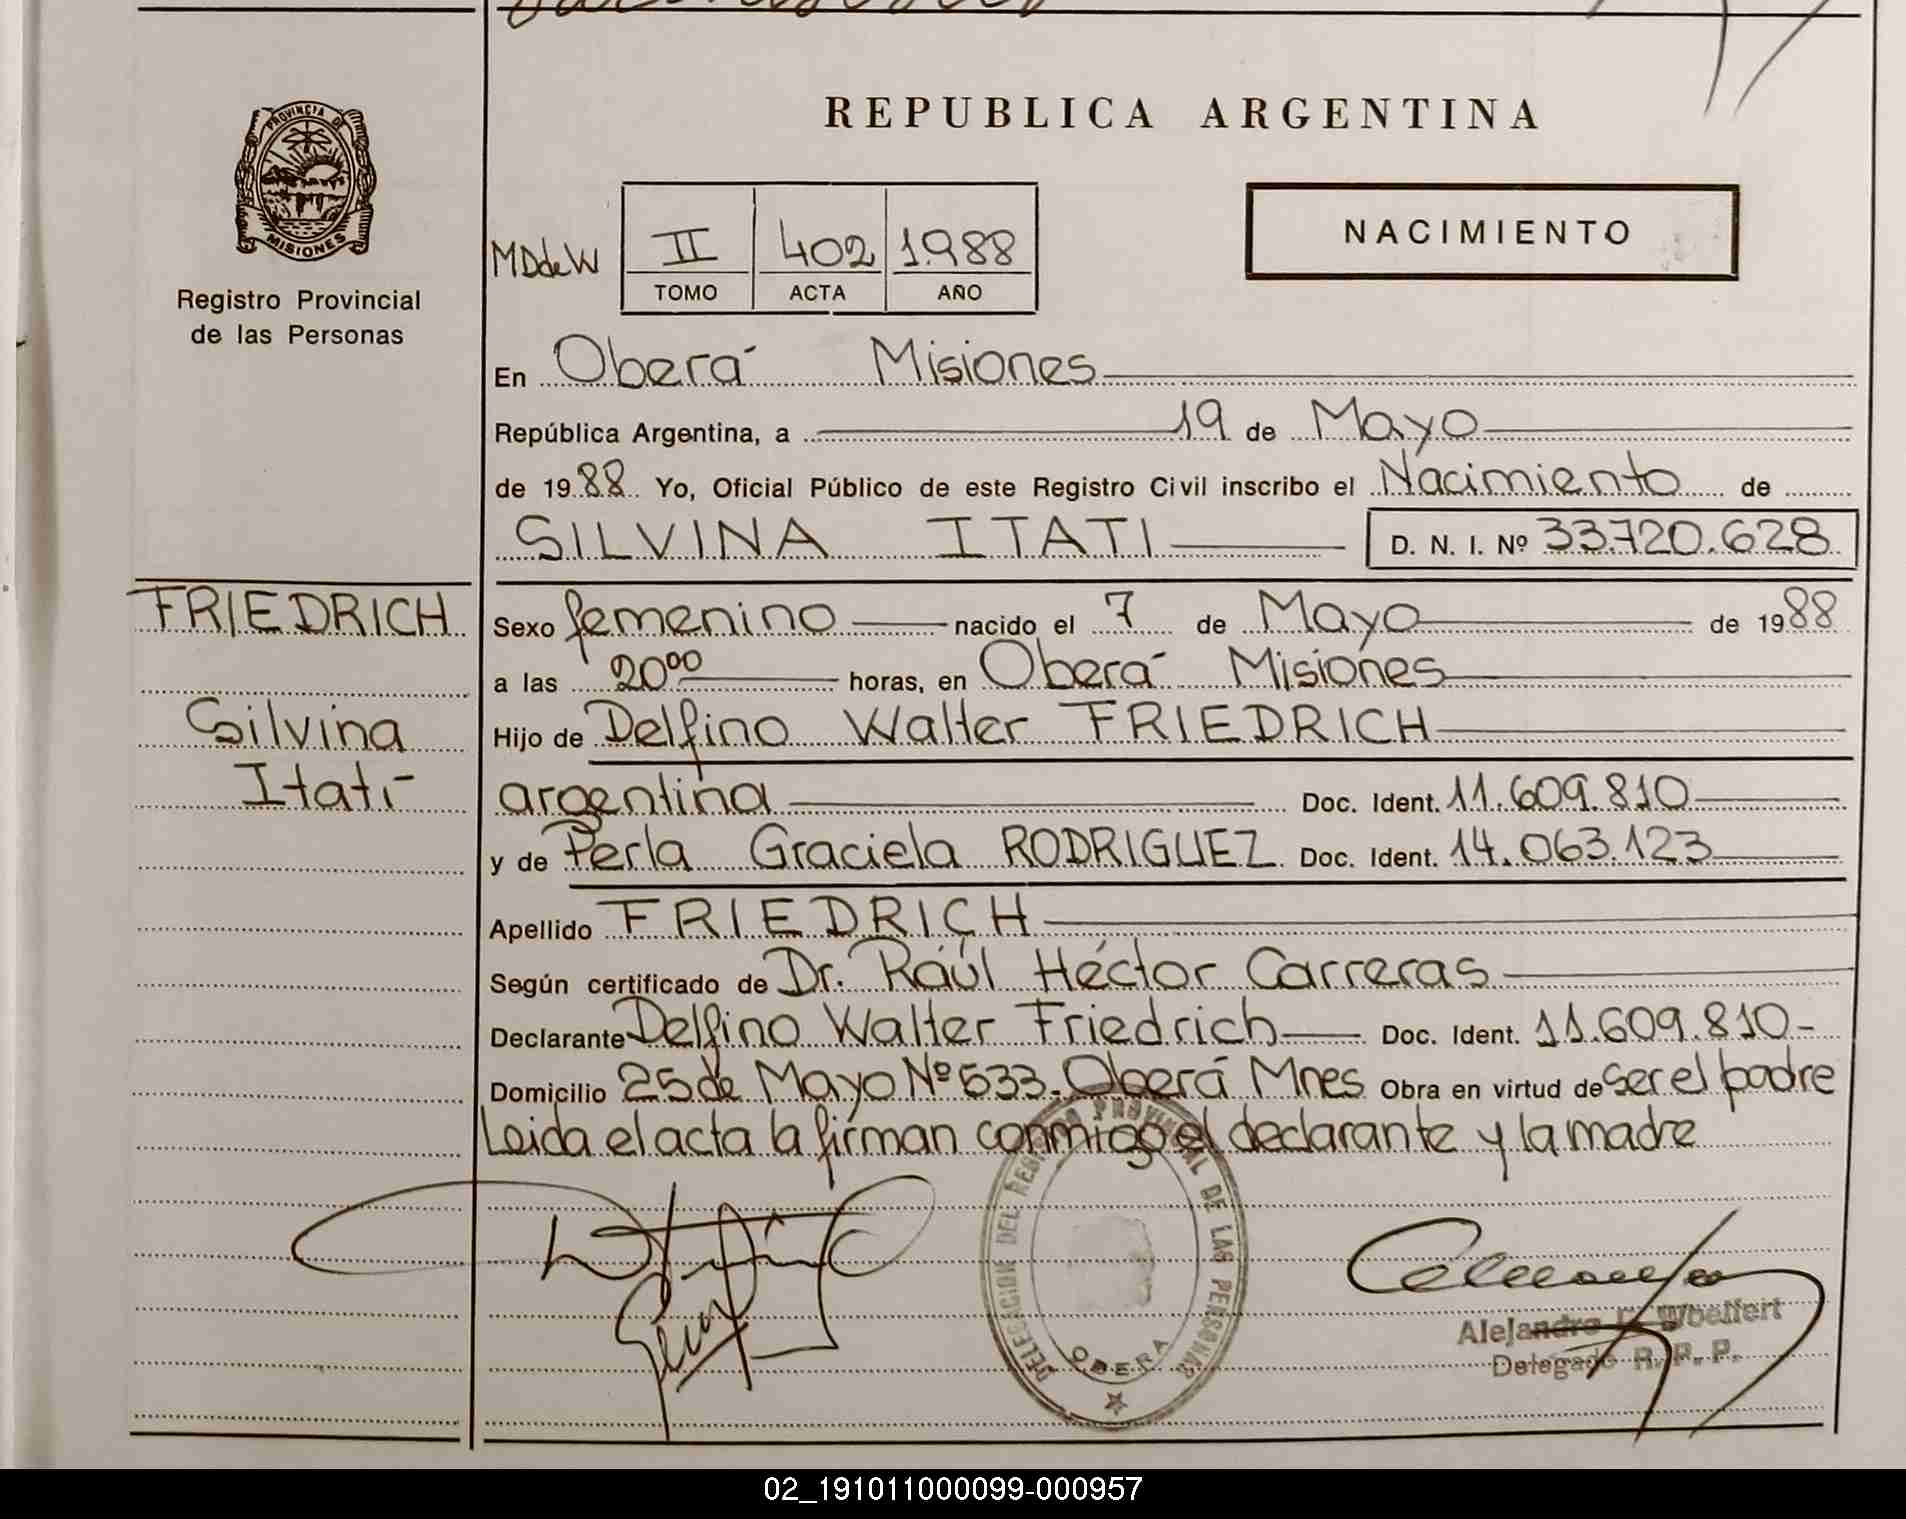 PROVINCIA DE
MISIONES
Registro Provincial
de las Personas
REPUBLICA ARGENTINA
NACIMIENTO
MDdeW
II 402 1.988
TOMO ACTA AÑO
En Oberá Misiones
República Argentina, a 19 de Mayo
de 1988 Yo, Oficial Público de este Registro Civil inscribo el Nacimiento de
SILVINA ITATI D. N. I. Nº 33.720.628
FRIEDRICH
Silvina
Itatí
Sexo femenino nacido el 7 de Mayo de 1988
a las 20⁰⁰ horas, en Oberá Misiones
Hijo de Delfino Walter FRIEDRICH
argentina Doc. Ident. 11.609.810
y de Perla Graciela RODRIGUEZ Doc. Ident. 14.063.123
Apellido FRIEDRICH
Según certificado de Dr. Raúl Héctor Carreras
Declarante Delfino Walter Friedrich Doc. Ident. 11.609.810-
Domicilio 25 de Mayo Nº 533. Oberá Mnes Obra en virtud de ser el padre
Leida el acta la firman conmigo el declarante y la madre
DELEGACION DEL REGISTRO PROVINCIAL DE LAS PERSONAS
OBERA
Alejandro Woelfert
Delegado R. P. P.
02_191011000099-000957